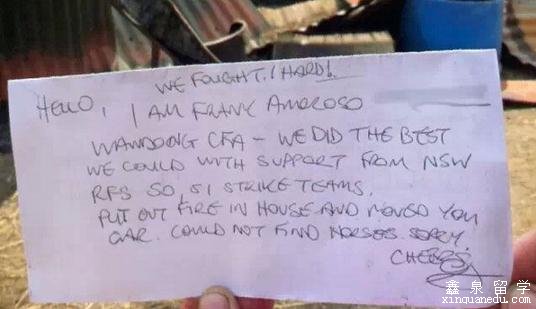 WE FOUGHT! HARD!
HELLO, I AM FRANK AMOROSO
WANDONG CFA - WE DID THE BEST
WE COULD WITH SUPPORT FROM NSW
RFS SO, 51 STRIKE TEAMS.
PUT OUT FIRE IN HOUSE AND MOVED YOU
CAR. COULD NOT FIND HORSES. SORRY.
CHEERS
鑫泉留学
xinquanedu.com